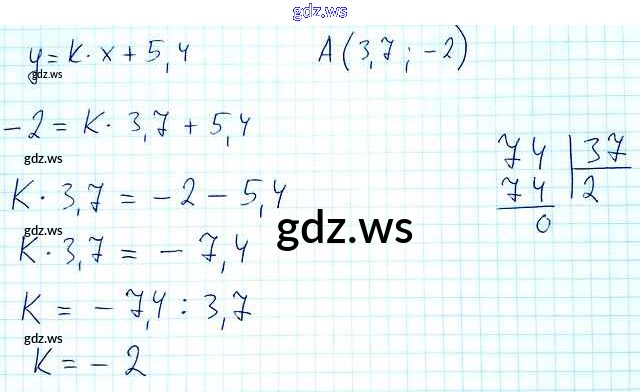 gdz.ws
y = K · x + 5,4 A(3,7 ; -2)
gdz.ws
-2 = K · 3,7 + 5,4
gdz.ws
K · 3,7 = -2 - 5,4
gdz.ws
K · 3,7 = - 7,4
gdz.ws
K = - 7,4 : 3,7
gdz.ws
K = - 2
gdz.ws
74 | 37
74 | 2
0